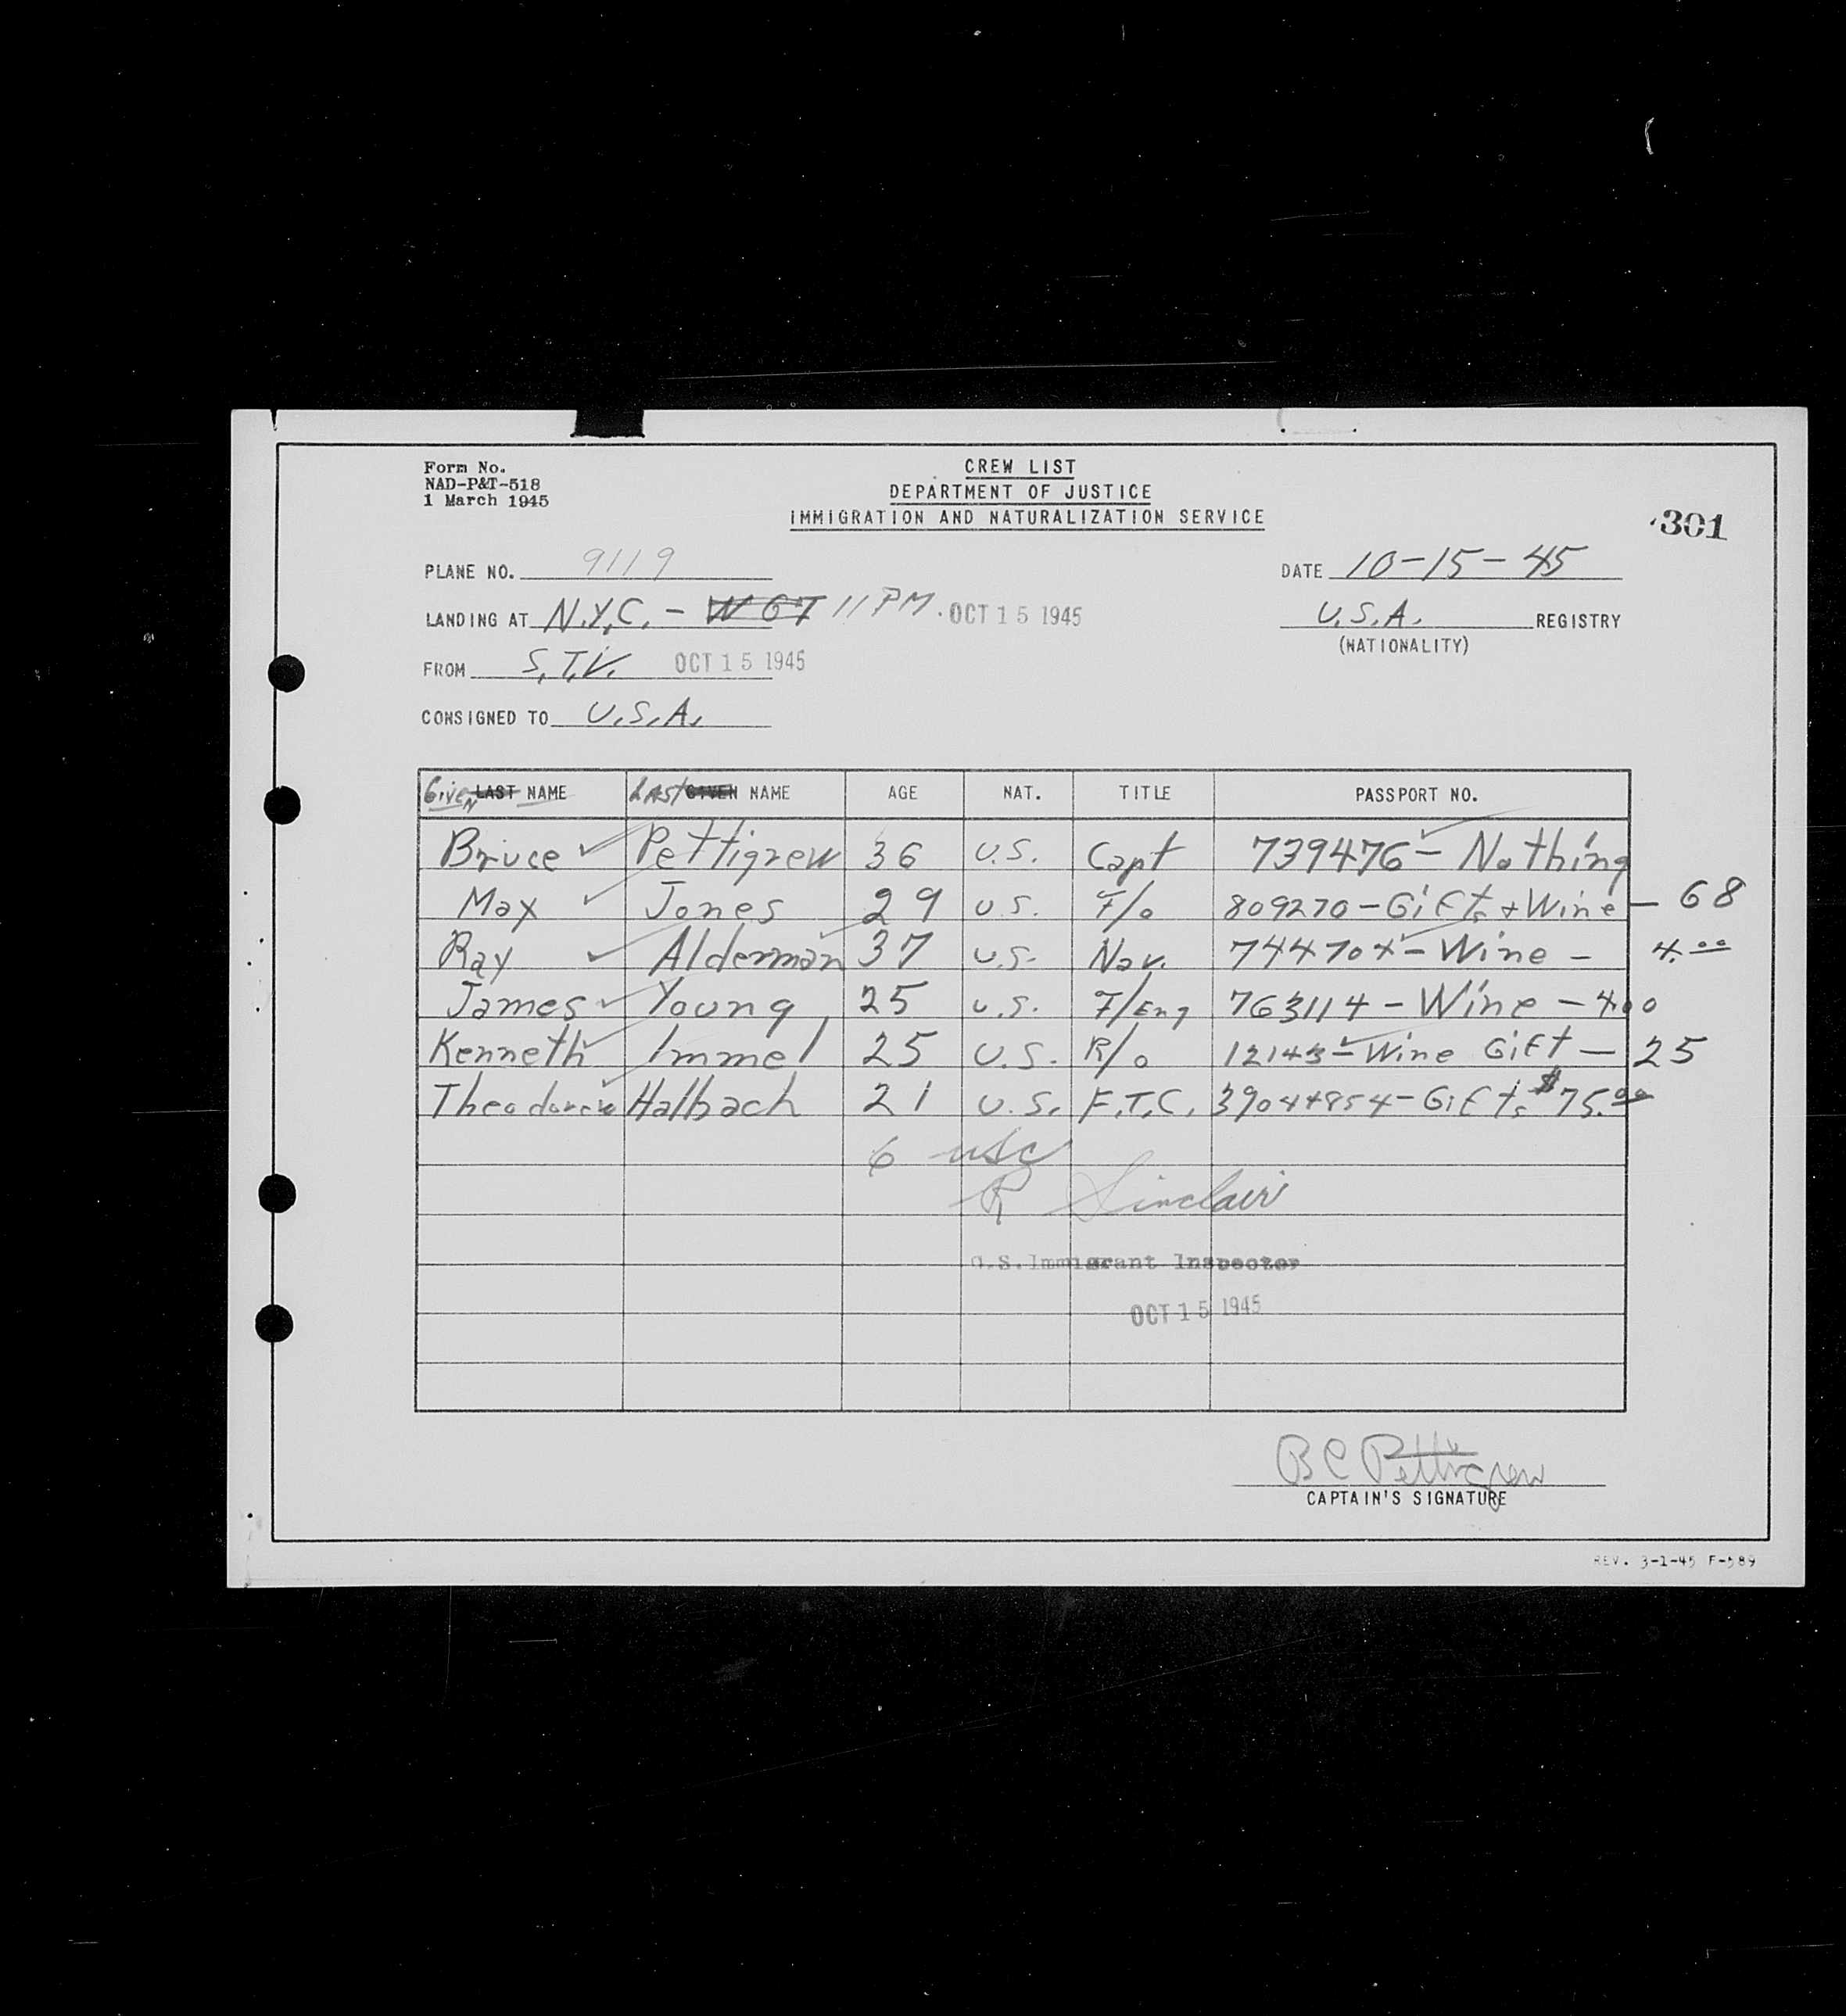 Form No.
NAD-P&T-518
1 March 1945
CREW LIST
DEPARTMENT OF JUSTICE
IMMIGRATION AND NATURALIZATION SERVICE
301
PLANE NO. 9119
DATE 10-15-45
LANDING AT N.Y.C. - W GT 11 PM. OCT 15 1945
U.S.A. REGISTRY
(NATIONALITY)
FROM S.T.V. OCT 15 1945
CONSIGNED TO U.S.A.
Given LAST NAME LAST GIVEN NAME AGE NAT. TITLE PASSPORT NO.
Bruce Pettigrew 36 U.S. Capt 739476 - Nothing
Max Jones 29 U.S. F/o 809270 - Gifts + Wine - 68
Ray Alderman 37 U.S. Nav. 744704 - Wine - 4.00
James Young 25 U.S. F/Eng 763114 - Wine - 4.00
Kenneth Immel 25 U.S. R/o 12143 - Wine Gift - 25
Theodore Halbach 21 U.S. F.T.C. 39044854 - Gifts $75.00
6 USC
R Sinclair
U.S. Immigrant Inspector
OCT 15 1945
B C Pettigrew
CAPTAIN'S SIGNATURE
REV. 3-1-45 F-589